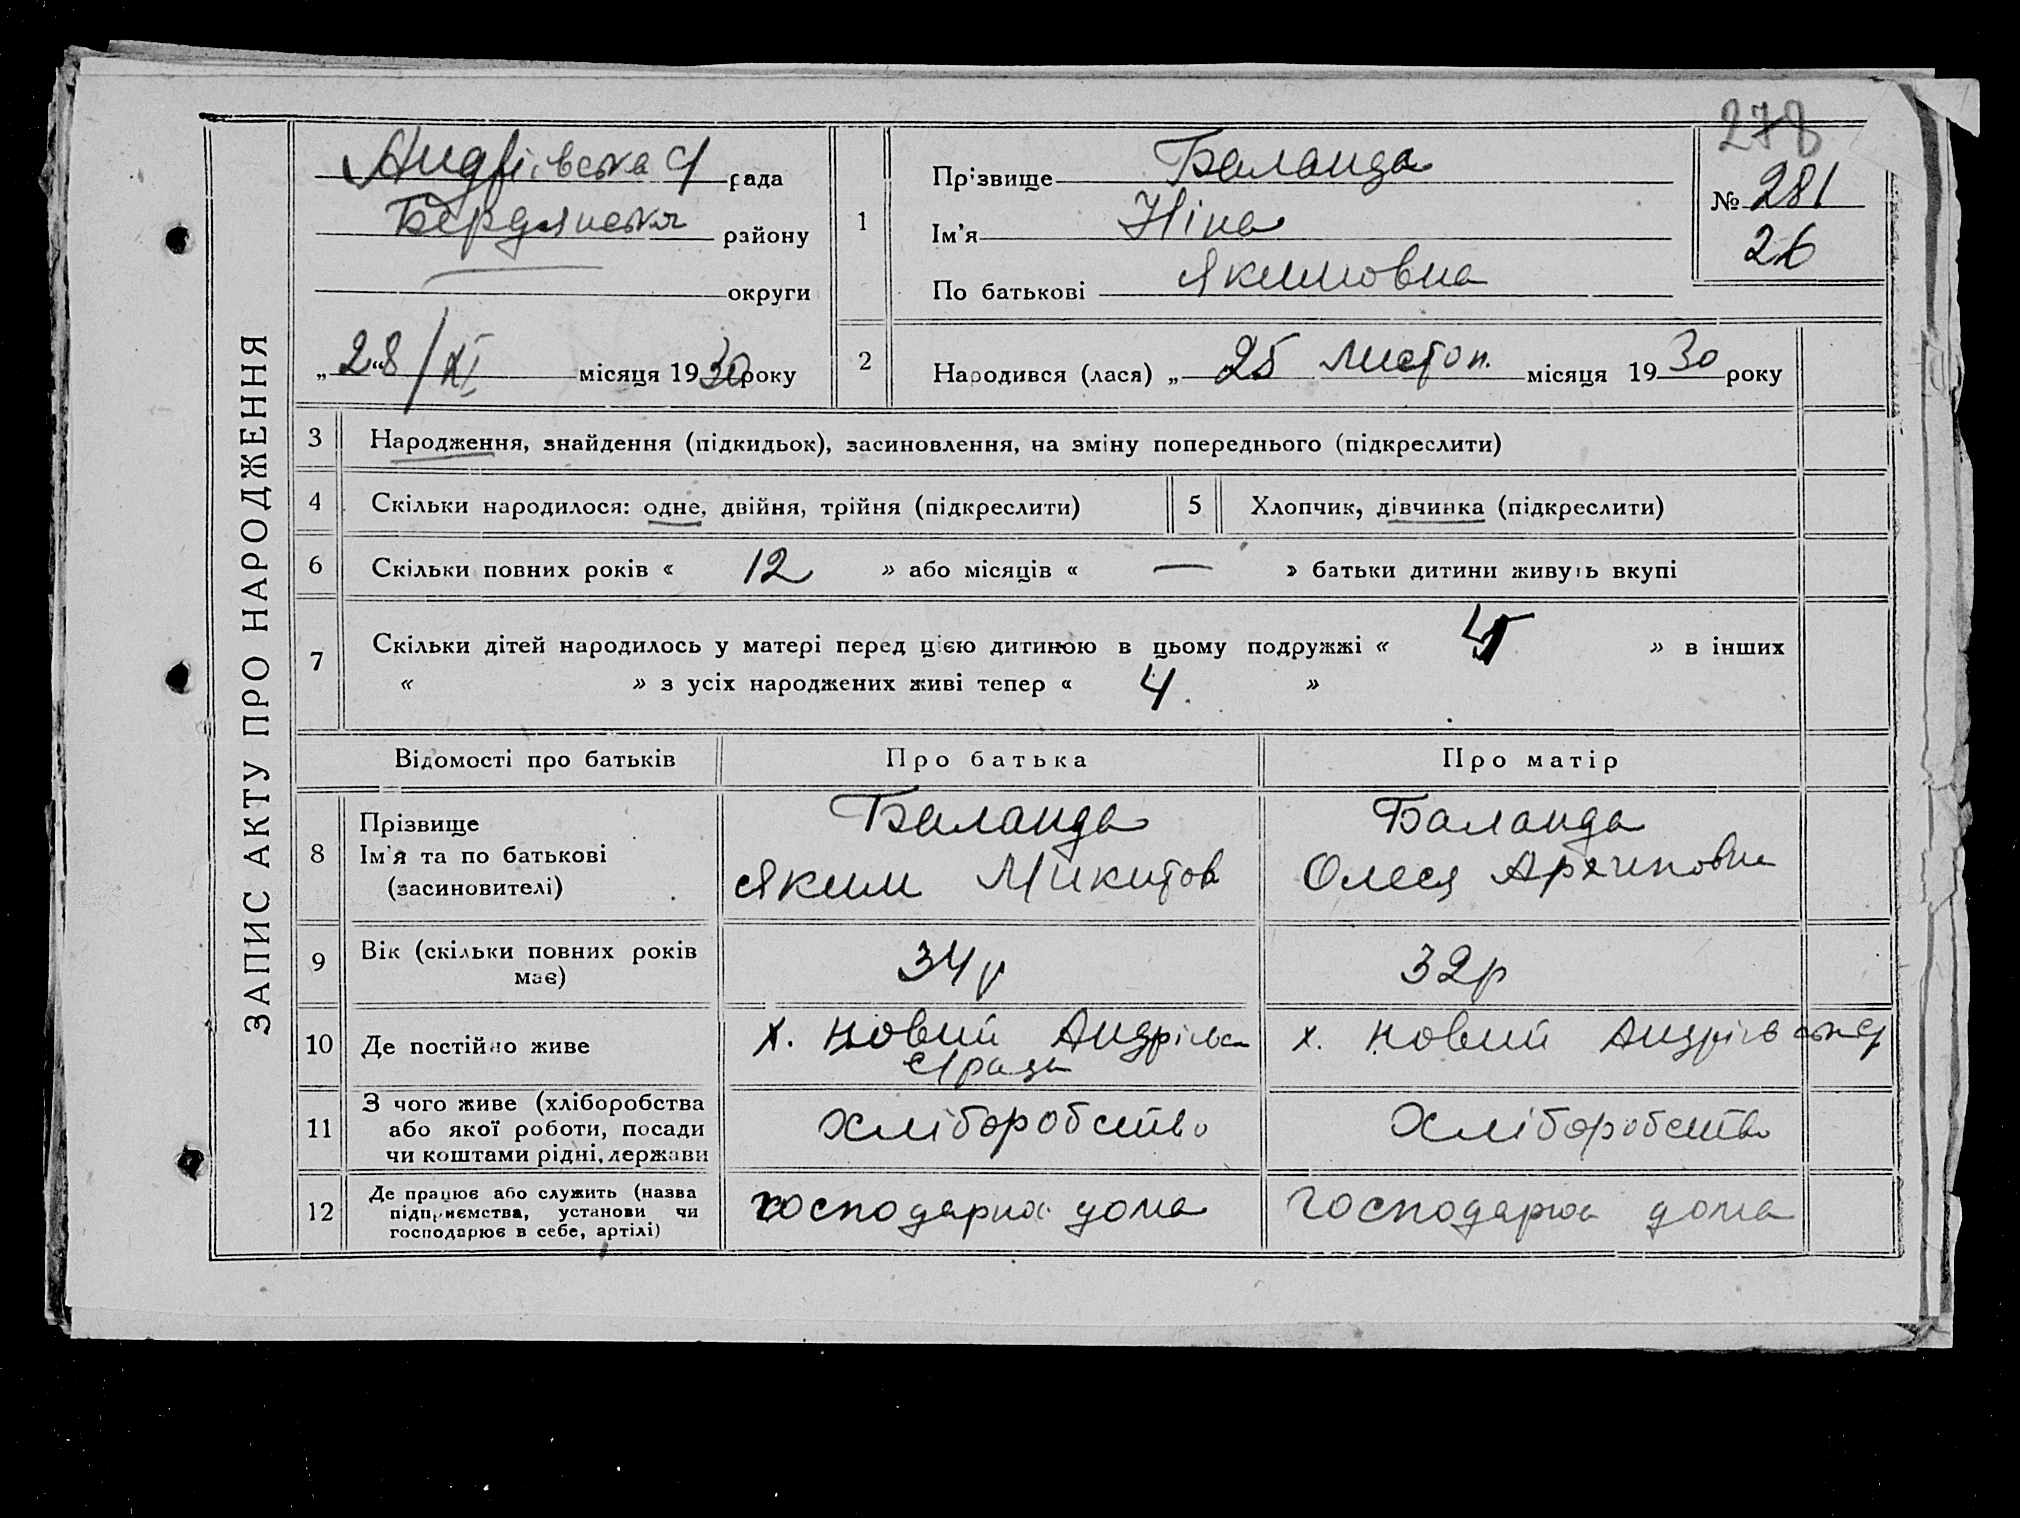 278
ЗАПИС АКТУ ПРО НАРОДЖЕННЯ
Андрієвська с/рада
Бердянськ району
округи
„28/XI“ місяця 1930 року
1
Прізвище Баланда
Ім’я Ніна
По батькові Якимовна
№ 281
26
2
Народився (лася) „ 25 листоп. місяця 1930 року
3 Народження, знайдення (підкидьок), засиновлення, на зміну попереднього (підкреслити)
4 Скільки народилося: одне, двійня, трійня (підкреслити) 5 Хлопчик, дівчинка (підкреслити)
6 Скільки повних років « 12 » або місяців « — » батьки дитини живуть вкупі
7 Скільки дітей народилось у матері перед цією дитиною в цьому подружжі « » в інших
« » з усіх народжених живі тепер « 4. »
Відомості про батьків Про батька Про матір
8 Прізвище
Ім’я та по батькові
(засиновителі)
Баланда
Яким Микитов
Баланда
Олеся
9 Вік (скільки повних років
має)
34р
32р
10 Де постійно живе
х. Новий Андрієвськ
с/ради
х. Новий Андрієвськ с/р
11 З чого живе (хліборобства
або якої роботи, посади
чи коштами рідні, держави
хліборобство
хліборобство
12 Де працює або служить (назва
підприємства, установи чи
господарює в себе, артілі)
господарює дома
господарює дома